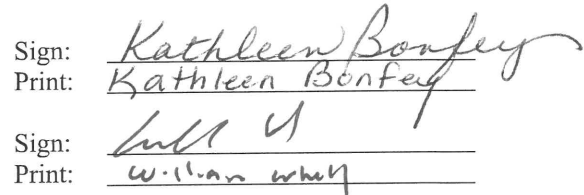 Sign: Kathleen Bonfey
Print: Kathleen Bonfey
Sign:
Print: William